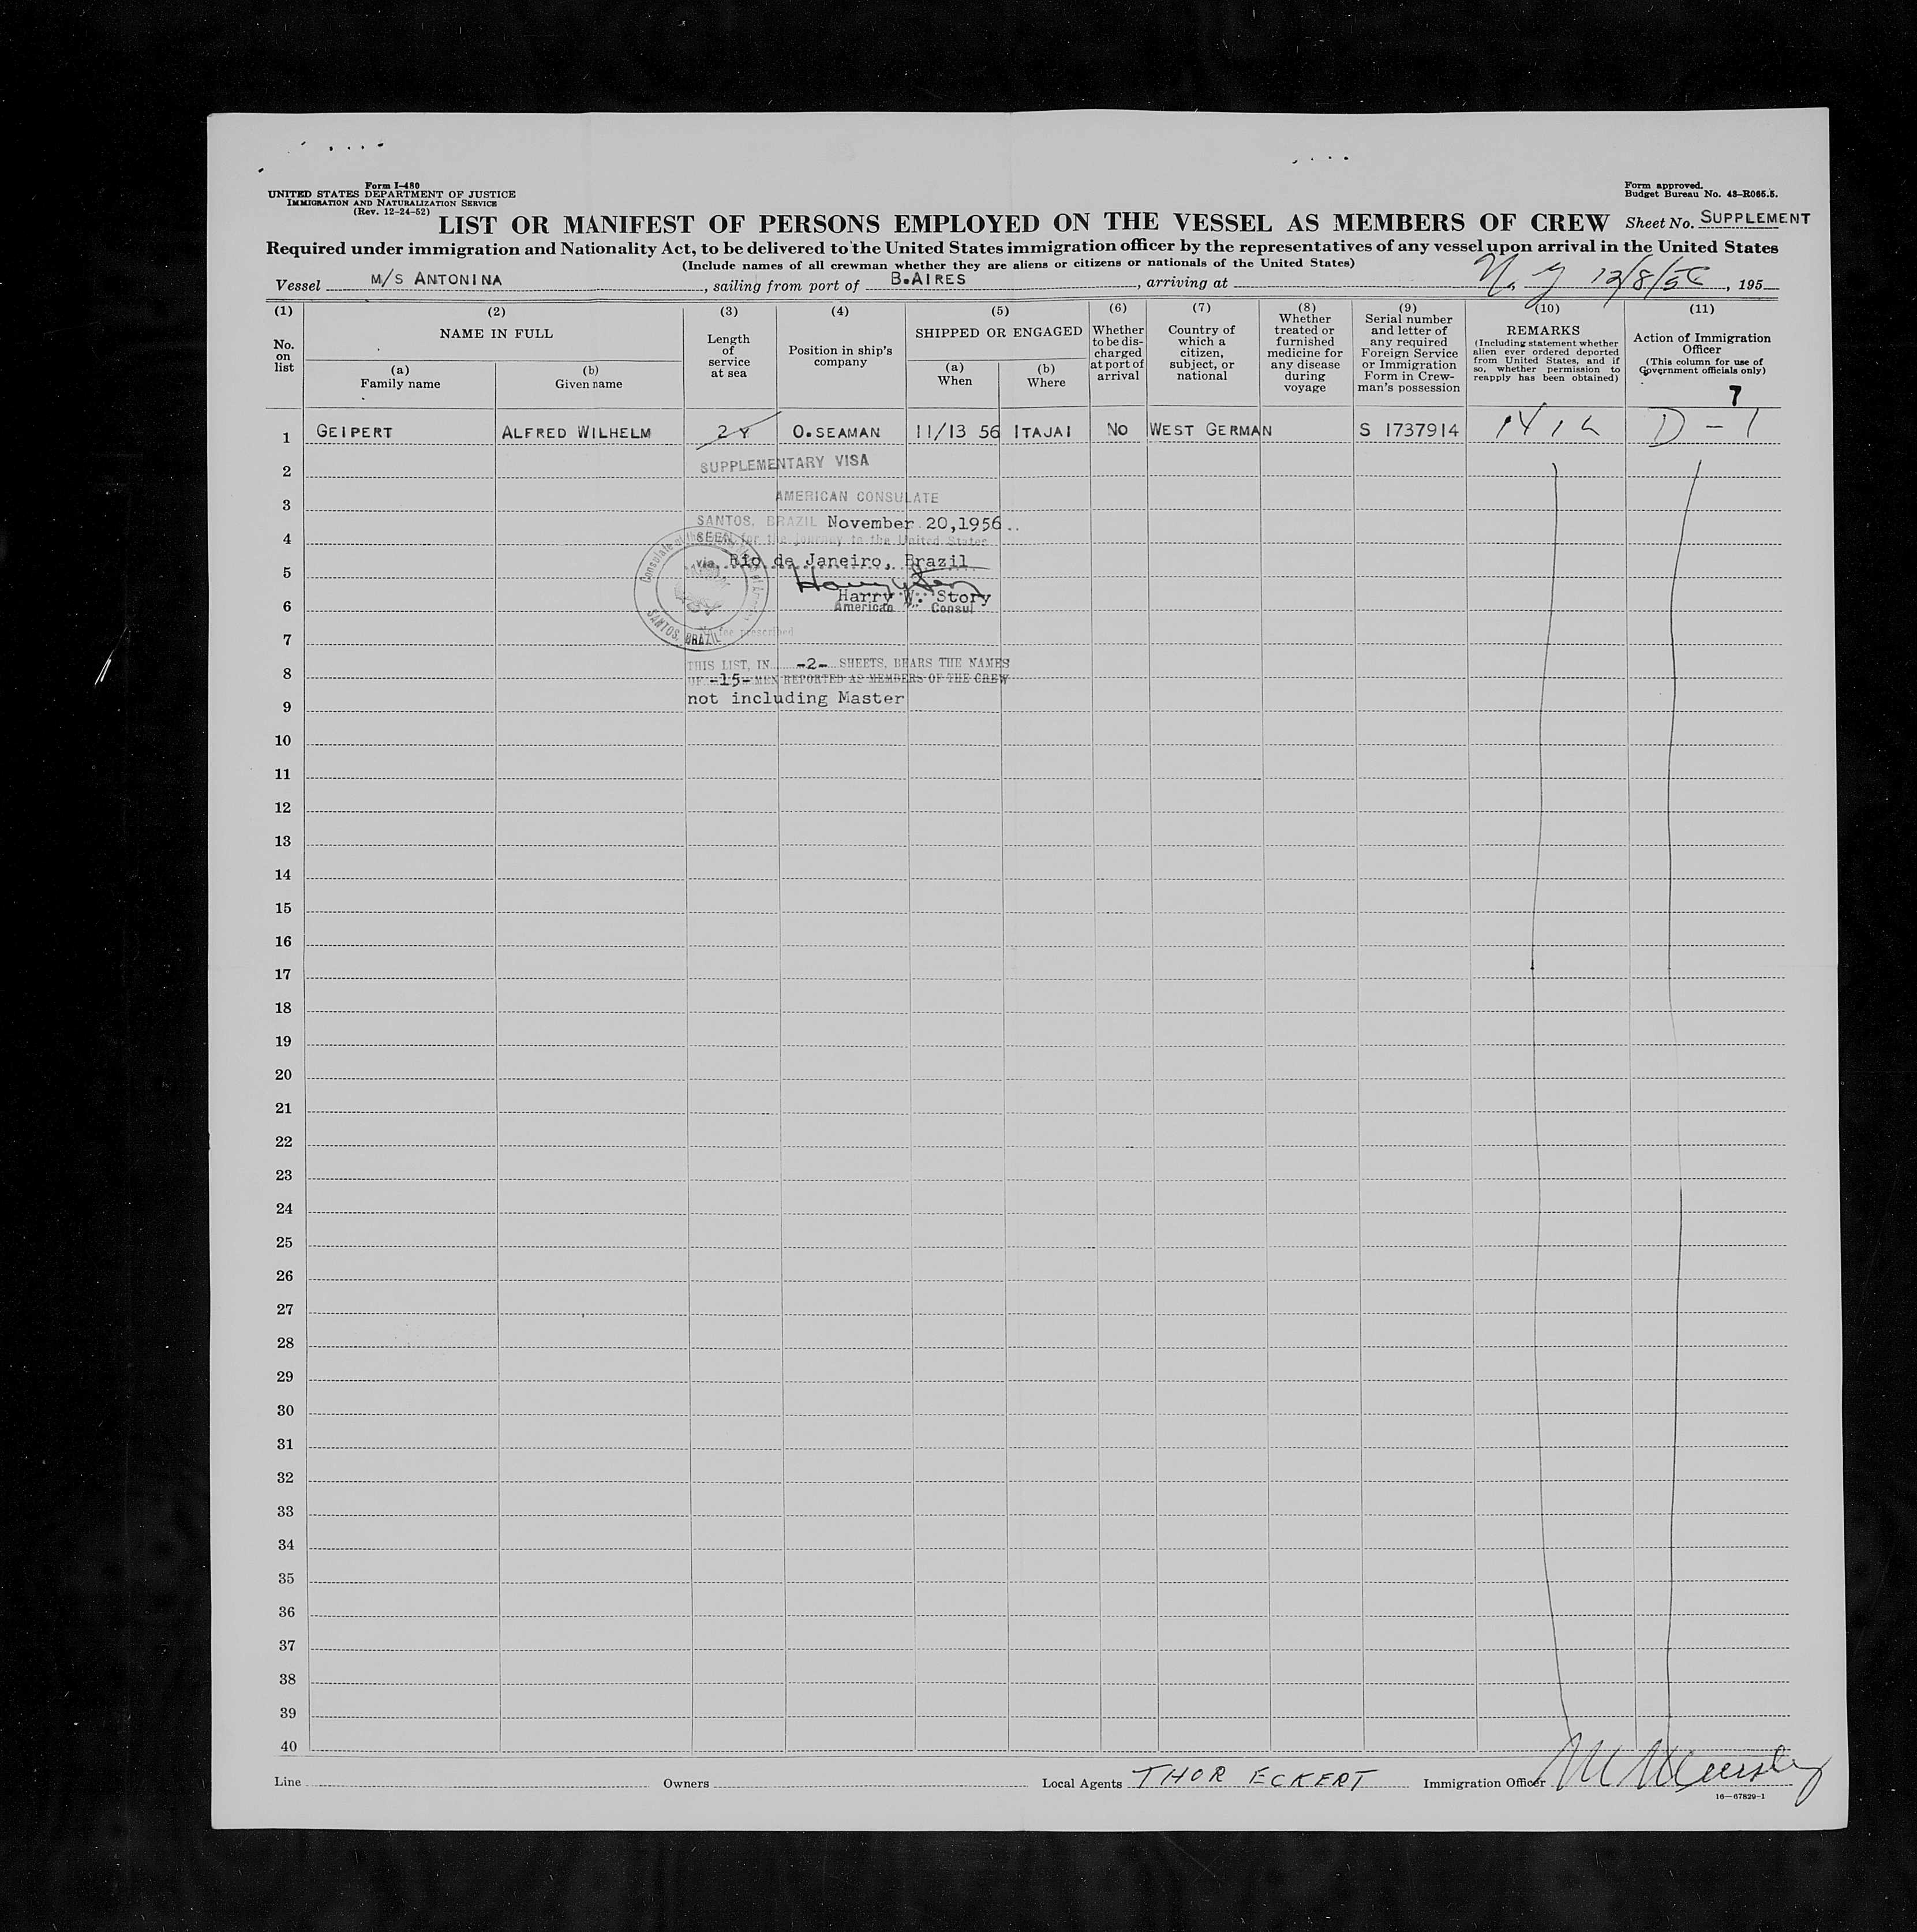 Form I-480
UNITED STATES DEPARTMENT OF JUSTICE
IMMIGRATION AND NATURALIZATION SERVICE
(Rev. 12-24-52)
Form approved.
Budget Bureau No. 43-R065.5.
LIST OR MANIFEST OF PERSONS EMPLOYED ON THE VESSEL AS MEMBERS OF CREW Sheet No. SUPPLEMENT
Required under immigration and Nationality Act, to be delivered to the United States immigration officer by the representatives of any vessel upon arrival in the United States
(Include names of all crewman whether they are aliens or citizens or nationals of the United States)
Vessel M/S ANTONINA, sailing from port of B.AIRES, arriving at N.Y 12/8/56, 195
(1) No. on list
(2) NAME IN FULL
(a) Family name
(b) Given name
(3) Length of service at sea
(4) Position in ship's company
(5) SHIPPED OR ENGAGED
(a) When
(b) Where
(6) Whether to be discharged at port of arrival
(7) Country of which a citizen, subject, or national
(8) Whether treated or furnished medicine for any disease during voyage
(9) Serial number and letter of any required Foreign Service or Immigration Form in Crewman's possession
(10) REMARKS (Including statement whether alien ever ordered deported from United States, and if so, whether permission to reapply has been obtained)
(11) Action of Immigration Officer (This column for use of Government officials only)
7
1 GEIPERT ALFRED WILHELM 2 Y O.SEAMAN 11/13 56 ITAJAI NO WEST GERMAN S 1737914 D-1
2 SUPPLEMENTARY VISA
3 AMERICAN CONSULATE
SANTOS, BRAZIL November 20,1956
4 SEEN for the journey to the United States
5 via Rio de Janeiro, Brazil
Harry W. Story
6 American Consul
Consulate of the
SANTOS, BRAZIL
7 fee prescribed
THIS LIST, IN -2- SHEETS, BEARS THE NAMES
8 OF -15- MEN REPORTED AS MEMBERS OF THE CREW
9 not including Master
10
11
12
13
14
15
16
17
18
19
20
21
22
23
24
25
26
27
28
29
30
31
32
33
34
35
36
37
38
39
40
Line Owners Local Agents THOR ECKERT Immigration Officer
16—67829-1